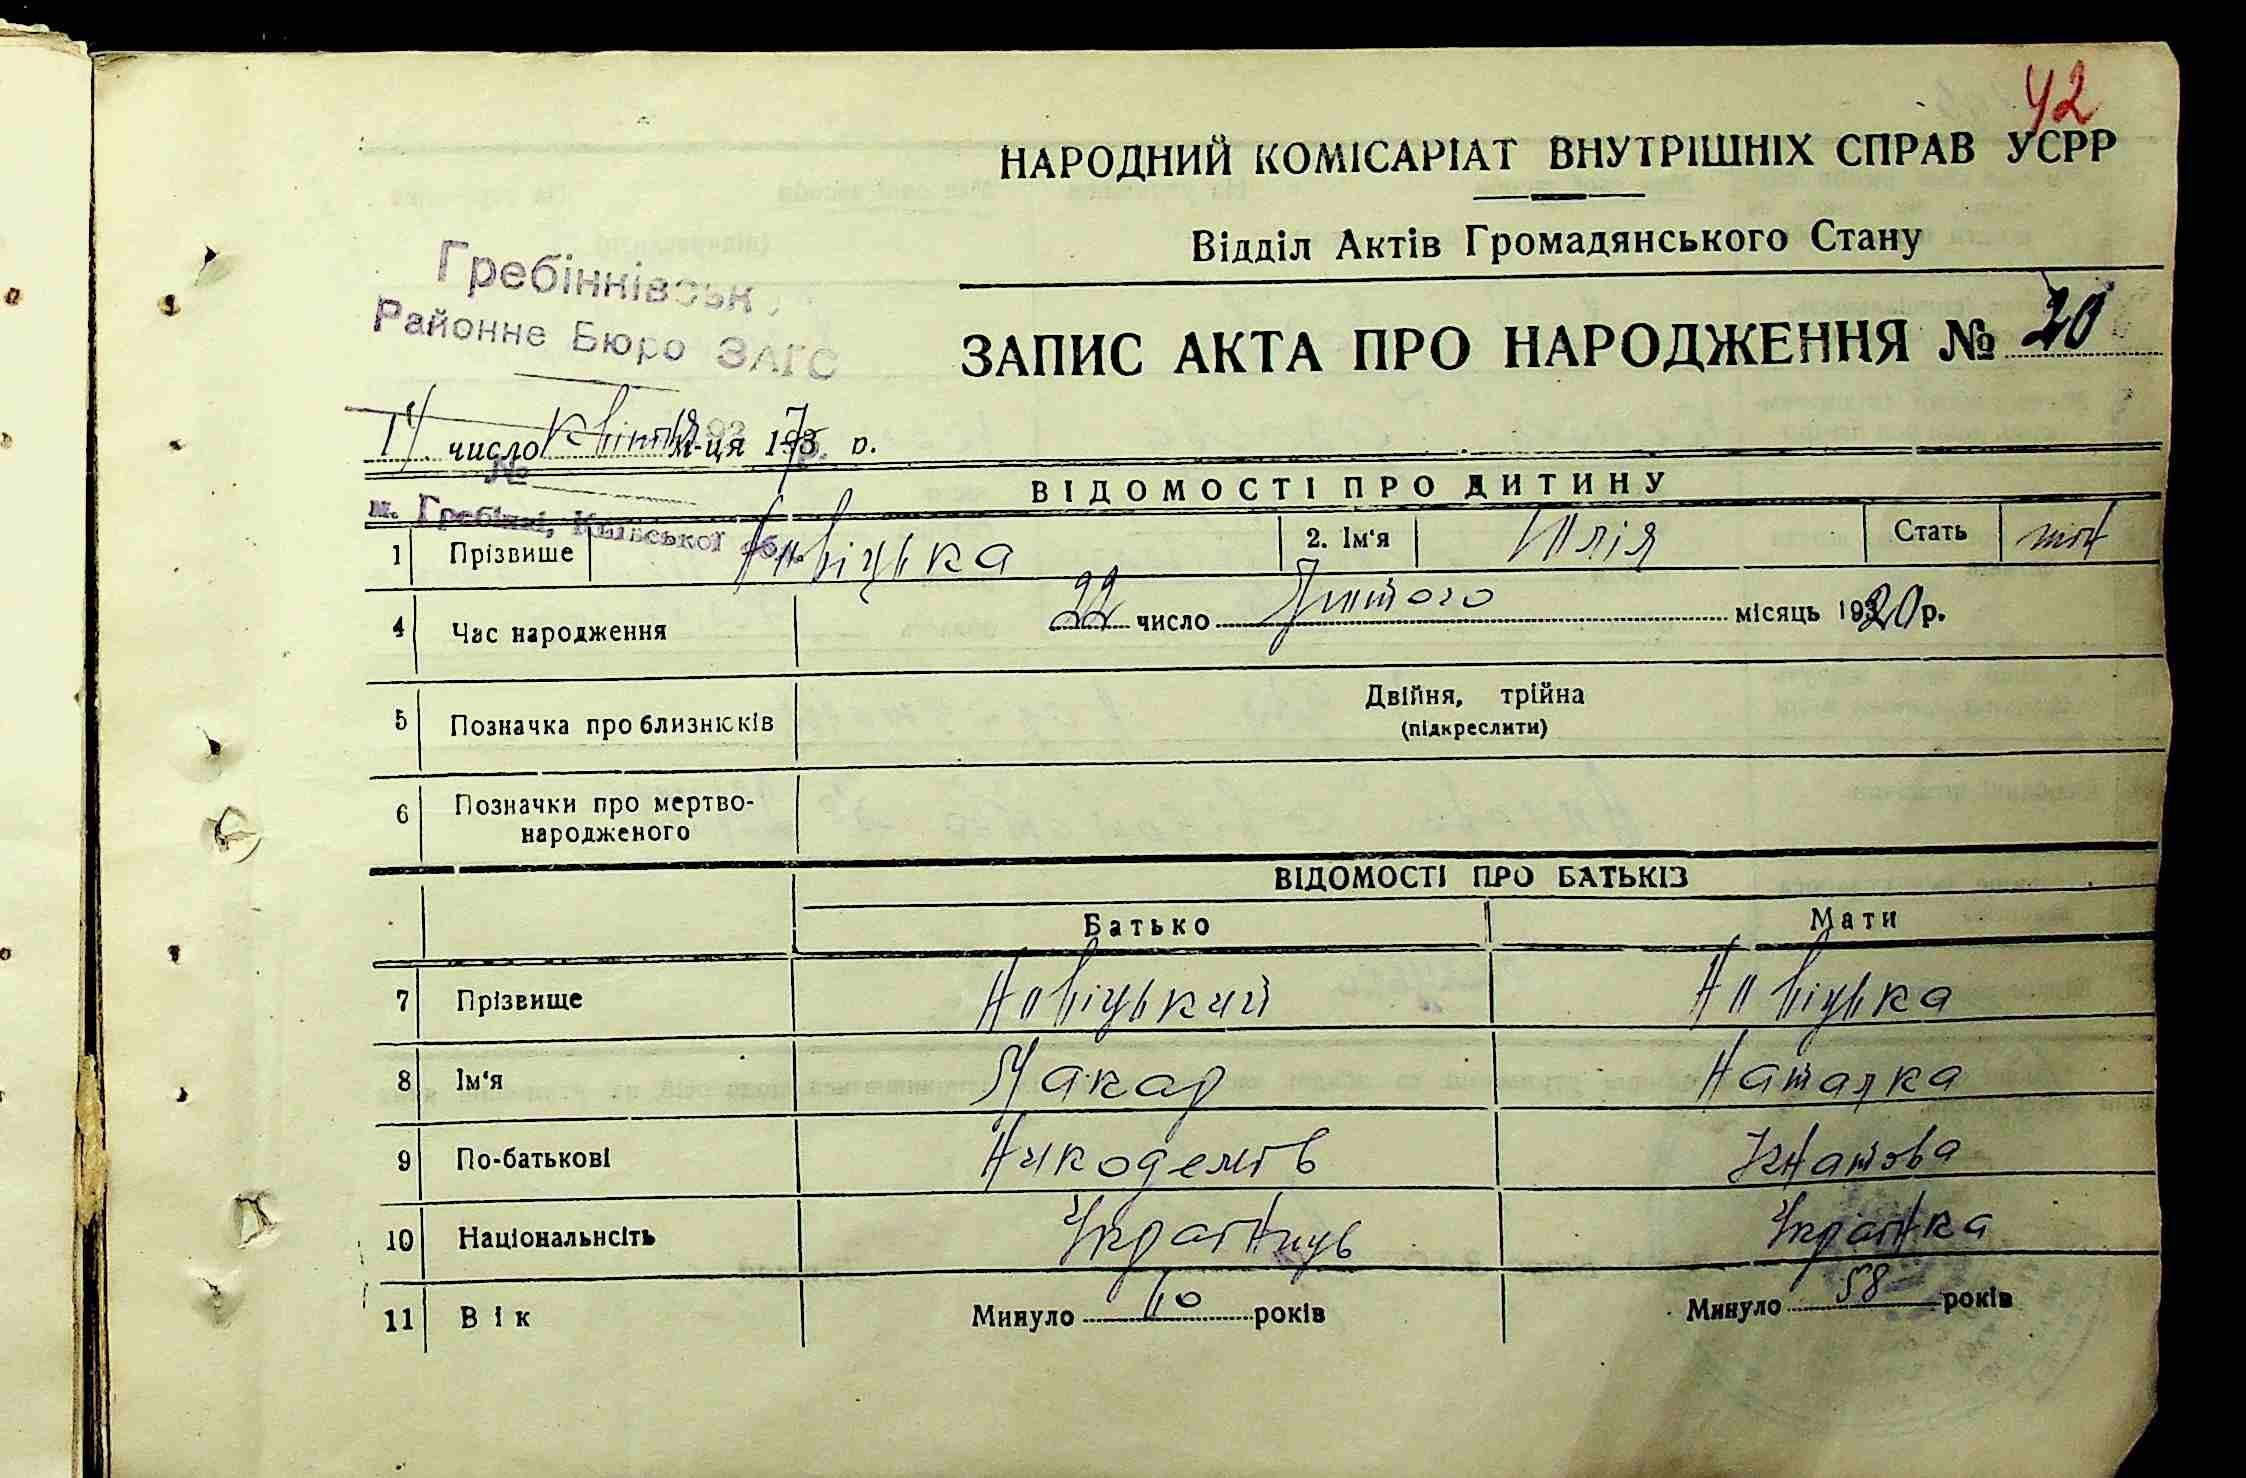 42
НАРОДНИЙ КОМІСАРІАТ ВНУТРІШНІХ СПРАВ УСРР
Відділ Актів Громадянського Стану
Гребінківськ
Районне Бюро ЗАГС
ЗАПИС АКТА ПРО НАРОДЖЕННЯ № 20
число квітня м-ця 1937 р.
№
м. Гребінкі, Київської обл.
ВІДОМОСТІ ПРО ДИТИНУ
1 Прізвище Новіцька 2. Ім'я Юлія Стать жін
4 Час народження 22 число Лютого місяць 1920 р.
5 Позначка про близнюків Двійня, трійна
(підкреслити)
6 Позначки про мертво-
народженого
ВІДОМОСТІ ПРО БАТЬКІВ
Батько Мати
7 Прізвище Новіцький Новіцька
8 Ім'я Макар Наталка
9 По-батькові Никодемів Ігнатова
10 Національнсіть Українць Українка
11 Вік Минуло 60 років Минуло 58 років